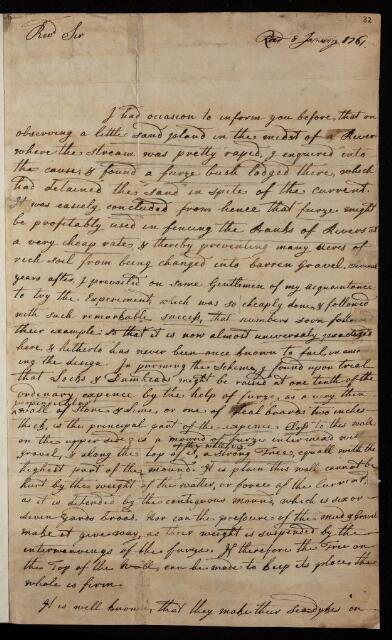 22
Revd Sir
Read 8 January 1761.
I had occasion to inform you before, that on
observing a little sand Island in the midst of a River
where the stream was pretty rapid, I enquired into
the cause, & found a furze bush lodged there, which
had detained the sand in spite of the current.
It was easely concluded from hence that furze might
be profitably used in fencing the Banks of Rivers at
a very cheap rate, & thereby preventing many acres of
rich soil from being changed into barren Gravel.
years after, I prevailed on some Gentlemen of my acquaintance
to try the Experiment, which was so cheaply done, & followed
with such remarkable success, that numbers soon followed
their example: so that it is now almost universaly practiced
here, & hitherto has never been once known to fail, in answering
the design. In pursuing the Scheme, I found upon tryal
that Locks & Damheads might be raised at one tenth of the
ordinary expence by the help of furze, as a very thin
perpendicular
wall of stone & Lime, or one of deal boards two inches
thick, is the principal part of the expence. Close to this wall
on the upper side is a mound of furze interweaved with
gravel, & along the top of it, a strong Tree, equall with the
of the wall
highest part of the mound. It is plain this wall cannot be
hurt by the weight of the water, or force of the Current,
as it is defended by the contiguous mound, which is six or
seven yards broad. Nor can the pressure of the mud & Gravel
make it give way, as their weight is suspended by the
interweavings of the furze. If therefore the Tree on
the Top of the wall, can be made to keep its place the
whole is firm.
It is well known, that they make their Seadykes in